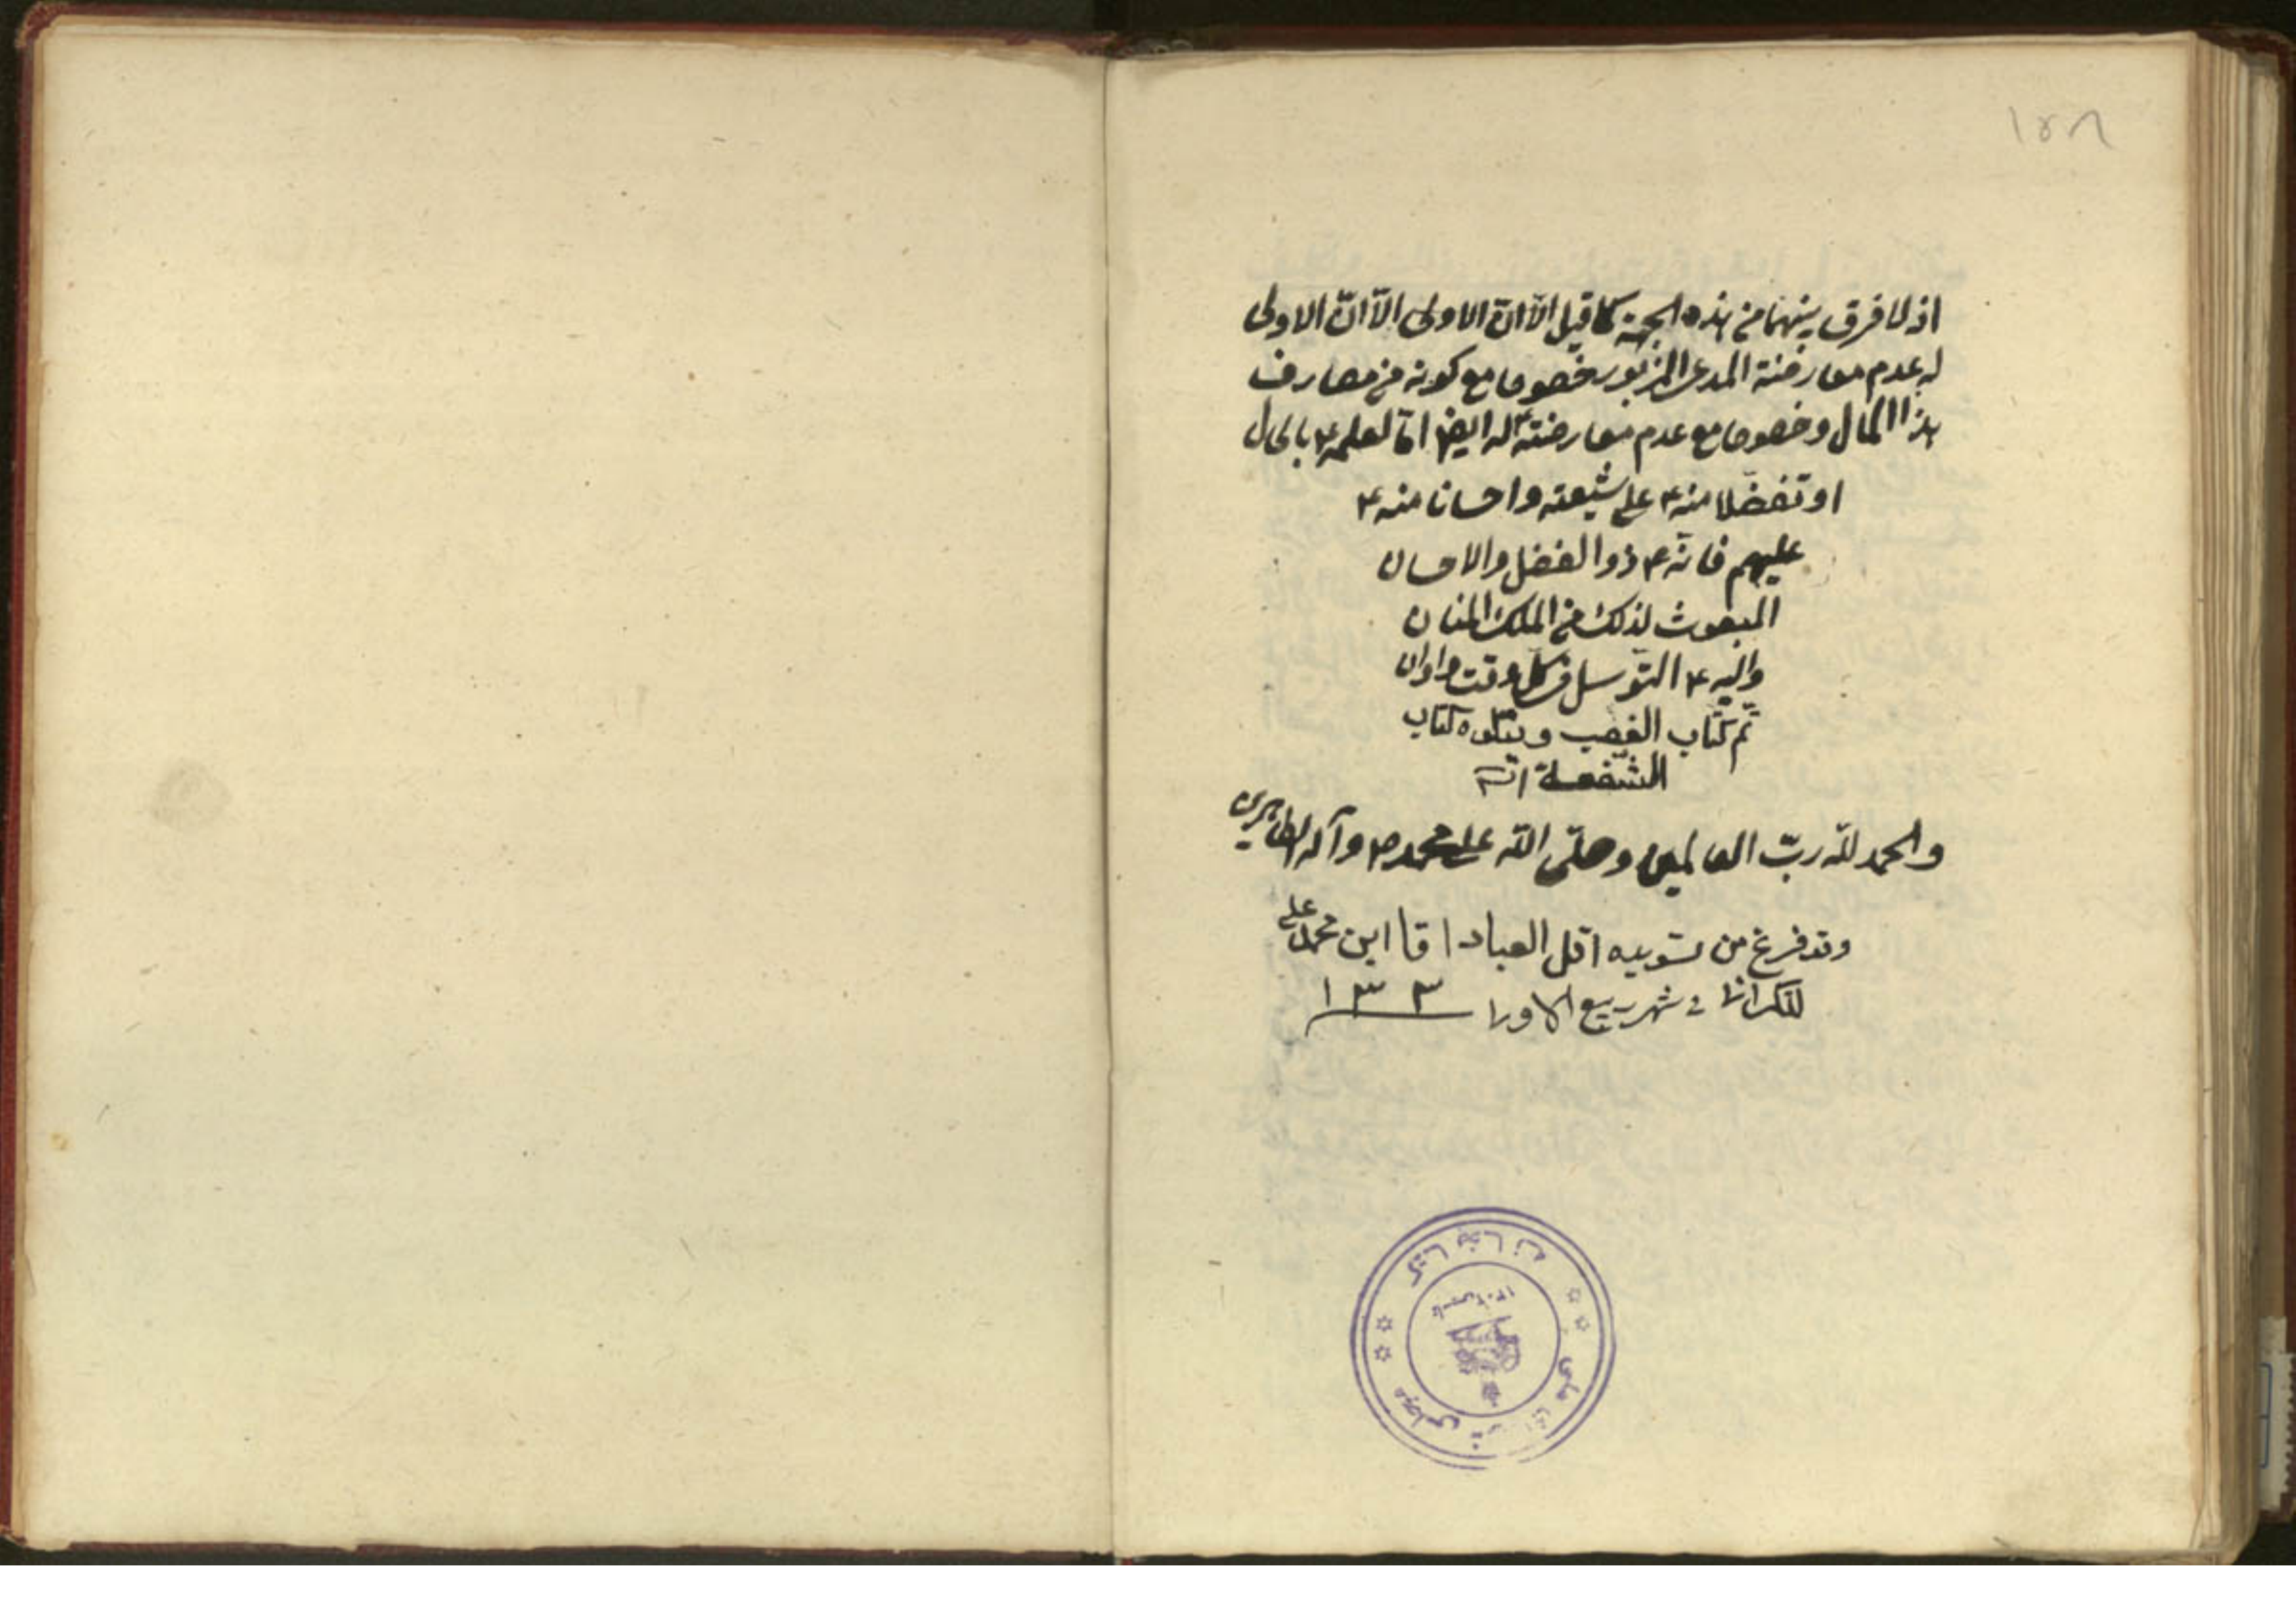 اذ لا فرق بينهما من هذه الجهة كما قيل الا ان الاولى الا انّ الاولى
له عدم معارضة المدعى المزبور خصوصا مع كونه من مصارف
هذا المال وخصوصا مع عدم معارضته ع له ايضا اما لعلمه ع بالحال
او تفضّلا منه ع على شيعته واحسانا منه ع
عليهم فانّه ع ذو الفضل والاحسان
المبعوث لذلك من الملك المنان
واليه ع التوسل في كل وقت واوان
تم كتاب الغصب ويتلوه كتاب
الشفعة
والحمد لله ربّ العالمين وصلّى الله على محمد ص وآله الطاهرين
وقد فرغ من تسويده اقل العباد اقا ابن محمد على
اللنكرانى في شهر ربيع الاول ١٣٣
كتابخانه
مجلس شوراى ملى
تاسيس ١٣٠٢